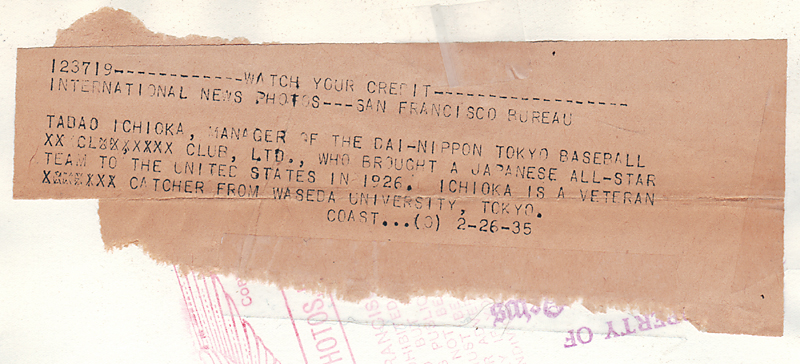 123719-------------WATCH YOUR CREDIT--------------------
INTERNATIONAL NEWS PHOTOS---SAN FRANCISCO BUREAU
TADAO ICHIOKA, MANAGER OF THE DAI-NIPPON TOKYO BASEBALL
XX CLXXXXXXX CLUB, LTD., WHO BROUGHT A JAPANESE ALL-STAR
TEAM TO THE UNITED STATES IN 1926. ICHIOKA IS A VETERAN
XXXXXXX CATCHER FROM WASEDA UNIVERSITY, TOKYO.
COAST...(O) 2-26-35
PHOTOS
ERTY OF